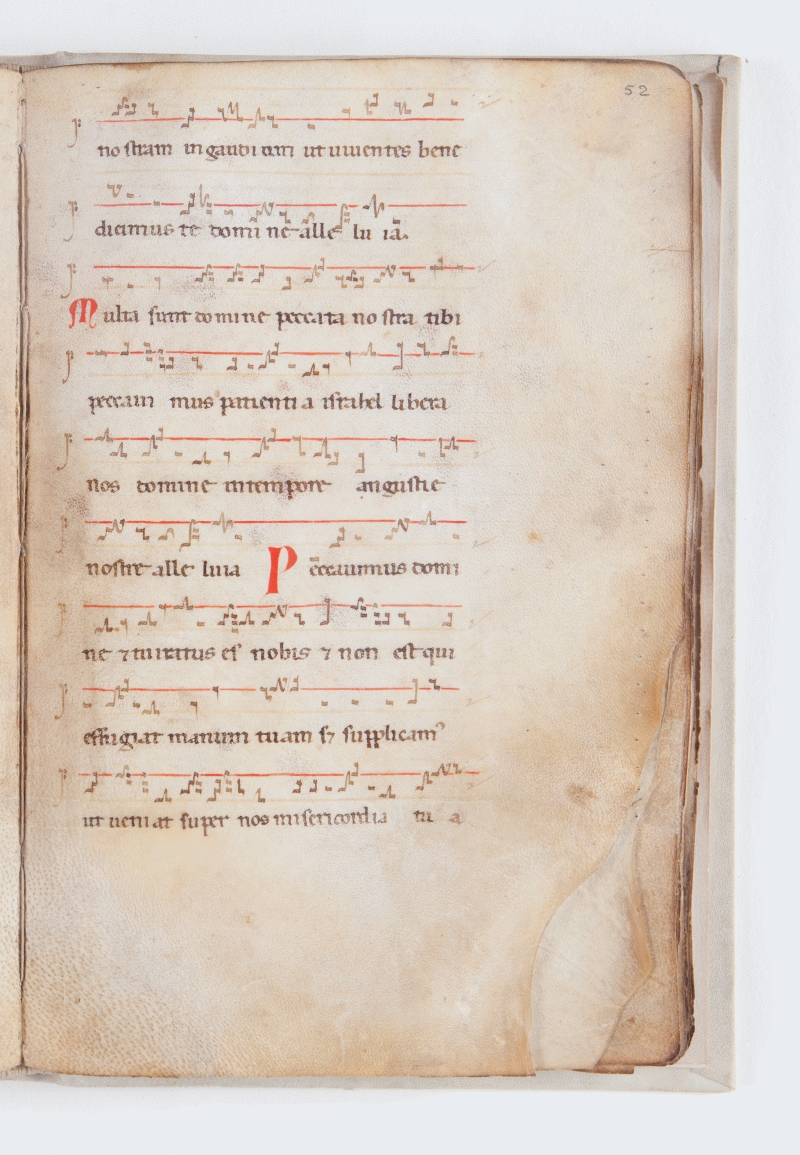 52
nostram in gaudium ut uiuentes bene
dicimus te domine alle lu ia.
Multa sunt domine peccata nostra tibi
peccaui mus patientia israhel libera
nos domine in tempore angustie
nostre alle luia Peccauimus domi
ne ⁊ tu iratus es nobis ⁊ non est qui
effugiat manum tuam s⁊ supplicam᷒
ut ueniat super nos misericordia tu a